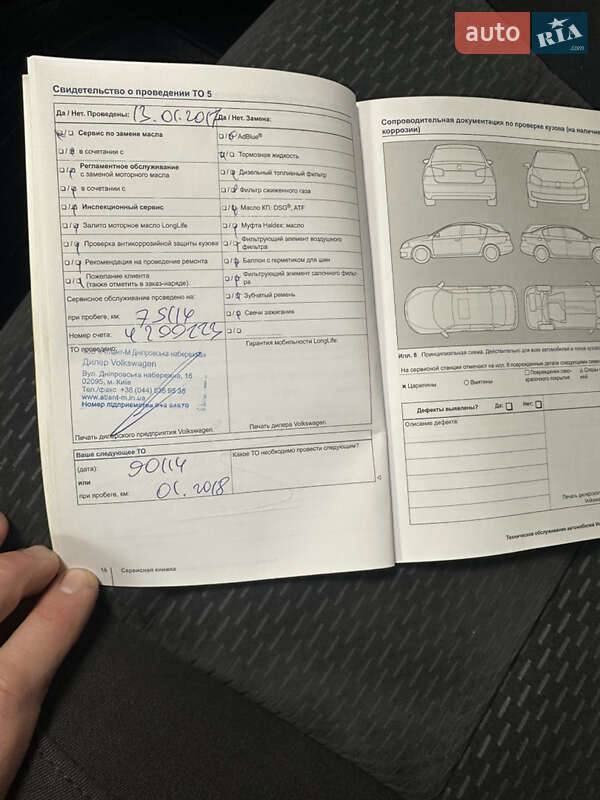 auto RIA .com
Свидетельство о проведении ТО 5
Да / Нет. Проведены: 13.01.2017
Да / Нет. Замена:
Сервис по замене масла
в сочетании с
Регламентное обслуживание
с заменой моторного масла
в сочетании с
Инспекционный сервис
Залито моторное масло LongLife
Проверка антикоррозийной защиты кузова
Рекомендация на проведение ремонта
Пожелание клиента
(также отметить в заказ-наряде)
AdBlue®
Тормозная жидкость
Дизельный топливный фильтр
Фильтр сжиженного газа
Масло КП: DSG®; ATF
Муфта Haldex: масло
Фильтрующий элемент воздушного
фильтра
Баллон с герметиком для шин
Фильтрующий элемент салонного фильт-
ра
Зубчатый ремень
Свечи зажигания
Сервисное обслуживание проведено на:
при пробеге, км: 75114
Номер счета: 4299223
ТО проведено:
Гарантия мобильности LongLife
Дніпровська набережна
Дилер Volkswagen
Вул. Дніпровська набережна, 16
02095, м. Київ
Тел./факс +38 (044)
www.atlant-m.in.ua
Номер підприємства
Печать дилерского предприятия Volkswagen
Печать дилера Volkswagen
Ваше следующее ТО
(дата): 90114
или
при пробеге, км: 01.2018
Какое ТО необходимо провести следующим?
16 Сервисная книжка
Сопроводительная документация по проверке кузова (на наличие
коррозии)
Илл. 8 Принципиальная схема. Действительно для всех автомобилей и типов кузова
На сервисной станции отмечают на илл. 8 поврежденные детали следующими
x Царапины
Вмятины
Повреждение
красочного покрытия
Следы
Дефекты выявлены?
Да:
Нет:
Описание дефекта:
Печать дилерского
Техническое обслуживание автомобилей